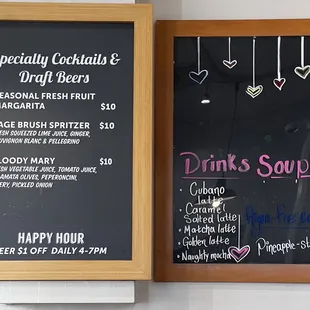 pecialty Cocktails &
Draft Beers
EASONAL FRESH FRUIT
MARGARITA $10
AGE BRUSH SPRITZER $10
SH SQUEEZED LIME JUICE, GINGER,
UVIGNON BLANC & PELLEGRINO
LOODY MARY $10
ESH VEGETABLE JUICE, TOMATO JUICE,
LAMATA OLIVES, PEPERONCINI,
ERY, PICKLED ONION
HAPPY HOUR
EER $1 OFF DAILY 4-7PM
Drinks Soup
• Cubano
latte
• Caramel
Salted latte
• Matcha latte
• Golden latte
• Naughty mocha
Pineapple-st